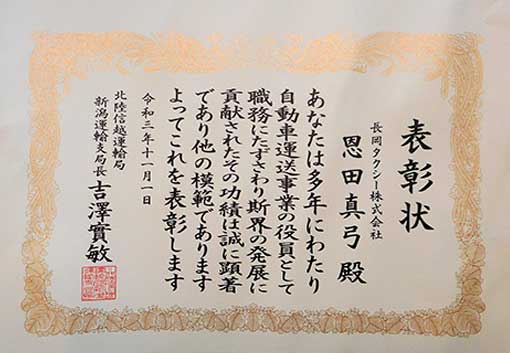 表彰状
長岡タクシー株式会社
恩田真弓 殿
あなたは多年にわたり
自動車運送事業の役員として
職務にたずさわり斯界の発展に
貢献されたその功績は誠に顕著
であり他の模範であります
よってこれを表彰します
令和三年十一月一日
北陸信越運輸局
新潟運輸支局長 吉澤實敏